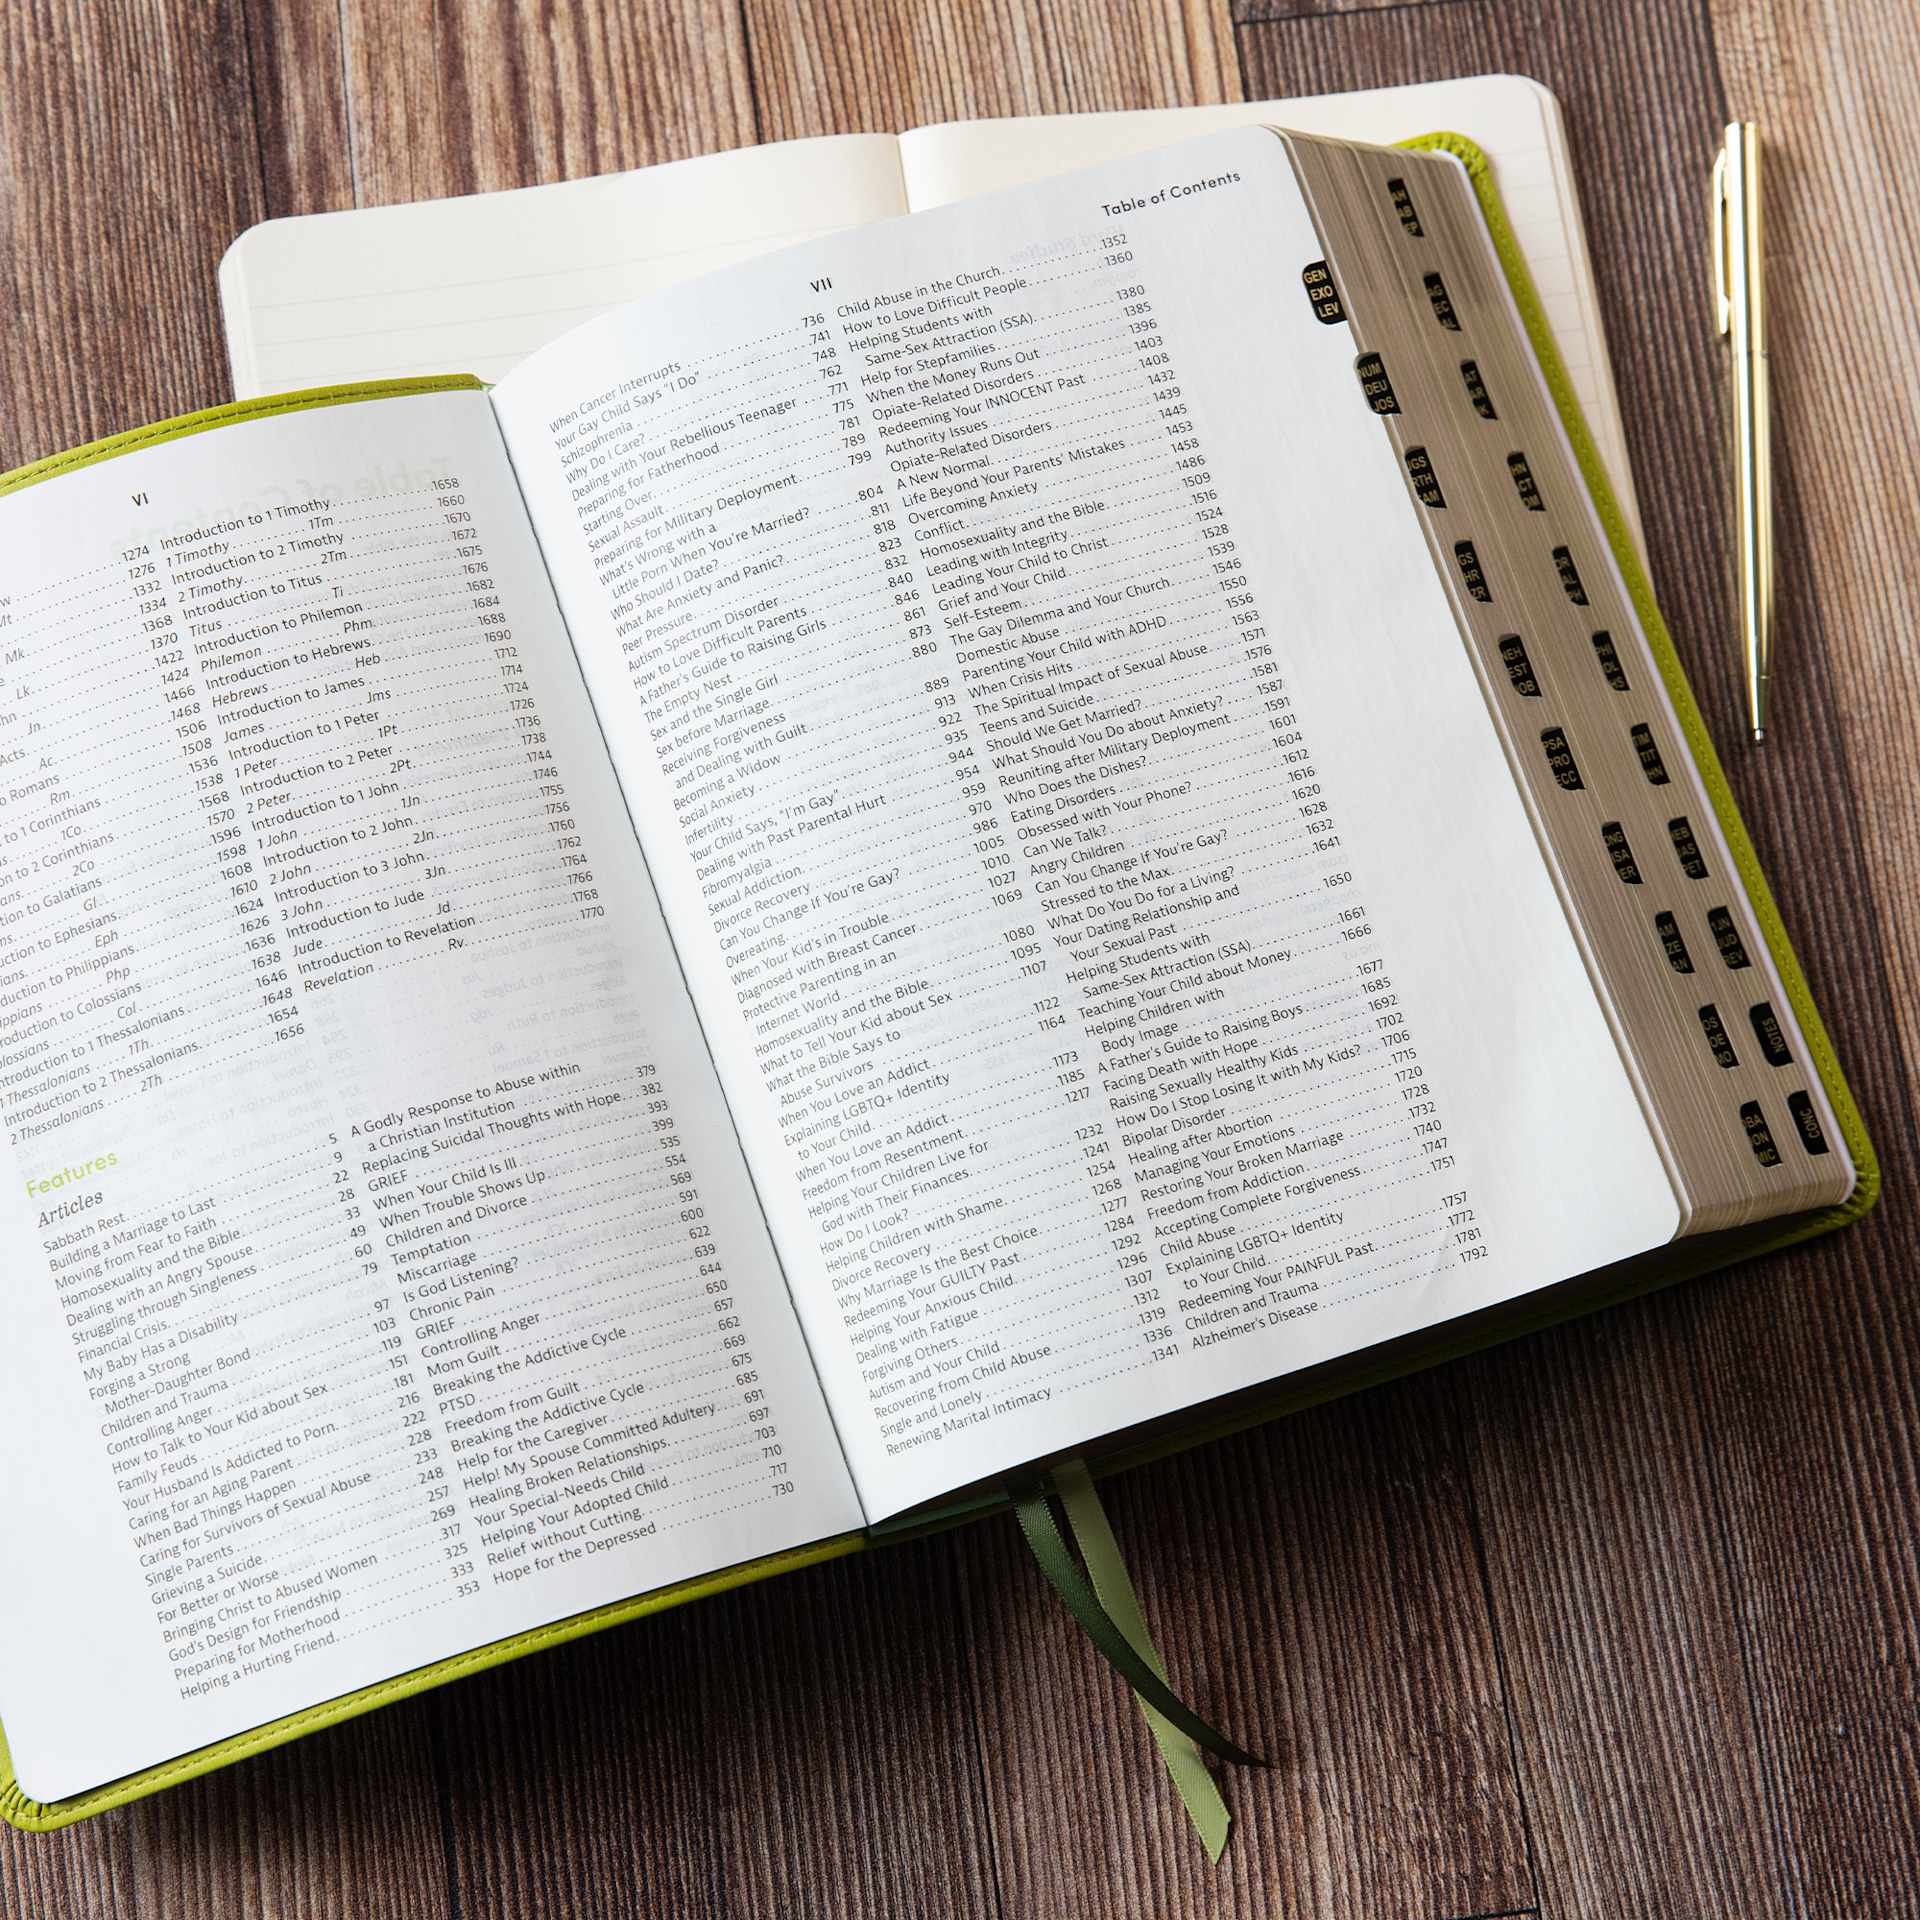 VI
w 1274
Mt 1276
1332
Mk 1334
e 1368
Lk 1370
hn 1422
Jn 1424
Acts 1466
Ac 1468
o Romans 1506
Rm 1508
to 1 Corinthians 1536
1Co 1538
on to 2 Corinthians 1568
2Co 1570
tion to Galatians 1596
Gl 1598
uction to Ephesians 1608
Eph 1610
duction to Philippians 1624
ippians Php 1626
roduction to Colossians 1636
olossians Col 1638
ntroduction to 1 Thessalonians 1646
1 Thessalonians 1Th 1648
Introduction to 2 Thessalonians 1654
2 Thessalonians 2Th 1656
Introduction to 1 Timothy 1658
1 Timothy 1Tm 1660
Introduction to 2 Timothy 1670
2 Timothy 2Tm 1672
Introduction to Titus 1675
Titus Ti 1676
Introduction to Philemon 1682
Philemon Phm 1684
Introduction to Hebrews 1688
Hebrews Heb 1690
Introduction to James 1712
James Jms 1714
Introduction to 1 Peter 1724
1 Peter 1Pt 1726
Introduction to 2 Peter 1736
2 Peter 2Pt 1738
Introduction to 1 John 1744
1 John 1Jn 1746
Introduction to 2 John 1755
2 John 2Jn 1756
Introduction to 3 John 1760
3 John 3Jn 1762
Introduction to Jude 1764
Jude Jd 1766
Introduction to Revelation 1768
Revelation Rv 1770
Features
Articles
Sabbath Rest 5
Building a Marriage to Last 9
Moving from Fear to Faith 22
Homosexuality and the Bible 28
Dealing with an Angry Spouse 33
Struggling through Singleness 49
Financial Crisis 60
My Baby Has a Disability 79
Forging a Strong
Mother-Daughter Bond 97
Children and Trauma 103
Controlling Anger 119
How to Talk to Your Kid about Sex 151
Family Feuds 181
Your Husband Is Addicted to Porn 216
Caring for an Aging Parent 222
When Bad Things Happen 228
Caring for Survivors of Sexual Abuse 233
Single Parents 248
Grieving a Suicide 257
For Better or Worse 269
Bringing Christ to Abused Women 317
God's Design for Friendship 325
Preparing for Motherhood 333
Helping a Hurting Friend 353
A Godly Response to Abuse within
a Christian Institution 379
Replacing Suicidal Thoughts with Hope 382
GRIEF 393
When Your Child Is Ill 399
When Trouble Shows Up 535
Children and Divorce 554
Temptation 569
Miscarriage 591
Is God Listening? 600
Chronic Pain 622
GRIEF 639
Controlling Anger 644
Mom Guilt 650
Breaking the Addictive Cycle 657
PTSD 662
Freedom from Guilt 669
Breaking the Addictive Cycle 675
Help for the Caregiver 685
Help! My Spouse Committed Adultery 691
Healing Broken Relationships 697
Your Special-Needs Child 703
Helping Your Adopted Child 710
Relief without Cutting 717
Hope for the Depressed 730
VII
Table of Contents
When Cancer Interrupts 736
Your Gay Child Says "I Do" 741
Schizophrenia 748
Why Do I Care? 762
Dealing with Your Rebellious Teenager 771
Preparing for Fatherhood 775
Starting Over 781
Sexual Assault 789
Preparing for Military Deployment 799
What's Wrong with a
Little Porn When You're Married? 804
Who Should I Date? 811
What Are Anxiety and Panic? 818
Peer Pressure 823
Autism Spectrum Disorder 832
How to Love Difficult Parents 840
A Father's Guide to Raising Girls 846
The Empty Nest 861
Sex and the Single Girl 873
Sex before Marriage 880
Receiving Forgiveness
and Dealing with Guilt 889
Becoming a Widow 913
Social Anxiety 922
Infertility 935
Your Child Says, "I'm Gay" 944
Dealing with Past Parental Hurt 954
Fibromyalgia 959
Sexual Addiction 970
Divorce Recovery 986
Can You Change If You're Gay? 1005
Overeating 1010
When Your Kid's in Trouble 1027
Diagnosed with Breast Cancer 1069
Protective Parenting in an
Internet World 1080
Homosexuality and the Bible 1095
What to Tell Your Kid about Sex 1107
What the Bible Says to
Abuse Survivors 1122
When You Love an Addict 1164
Explaining LGBTQ+ Identity
to Your Child 1173
When You Love an Addict 1185
Freedom from Resentment 1217
Helping Your Children Live for
God with Their Finances 1232
How Do I Look? 1241
Helping Children with Shame 1254
Divorce Recovery 1268
Why Marriage Is the Best Choice 1277
Redeeming Your GUILTY Past 1284
Helping Your Anxious Child 1292
Dealing with Fatigue 1296
Forgiving Others 1307
Autism and Your Child 1312
Recovering from Child Abuse 1319
Single and Lonely 1336
Renewing Marital Intimacy 1341
Child Abuse in the Church 1352
How to Love Difficult People 1360
Helping Students with
Same-Sex Attraction (SSA) 1380
Help for Stepfamilies 1385
When the Money Runs Out 1396
Opiate-Related Disorders 1403
Redeeming Your INNOCENT Past 1408
Authority Issues 1432
Opiate-Related Disorders 1439
A New Normal 1445
Life Beyond Your Parents' Mistakes 1453
Overcoming Anxiety 1458
Conflict 1486
Homosexuality and the Bible 1509
Leading with Integrity 1516
Leading Your Child to Christ 1524
Grief and Your Child 1528
Self-Esteem
The Gay Dilemma and Your Church 1539
Domestic Abuse 1546
Parenting Your Child with ADHD 1550
When Crisis Hits 1556
The Spiritual Impact of Sexual Abuse 1563
Teens and Suicide 1576
Should We Get Married? 1581
What Should You Do about Anxiety? 1587
Reuniting after Military Deployment 1591
Who Does the Dishes? 1601
Eating Disorders 1604
Obsessed with Your Phone? 1612
Can We Talk? 1616
Angry Children 1620
Can You Change If You're Gay? 1628
Stressed to the Max 1632
What Do You Do for a Living? 1641
Your Dating Relationship and
Your Sexual Past 1650
Helping Students with
Same-Sex Attraction (SSA) 1661
Teaching Your Child about Money 1666
Helping Children with
Body Image 1677
A Father's Guide to Raising Boys 1685
Facing Death with Hope 1692
Raising Sexually Healthy Kids 1702
How Do I Stop Losing It with My Kids? 1706
Bipolar Disorder 1715
Healing after Abortion 1720
Managing Your Emotions 1728
Restoring Your Broken Marriage 1732
Freedom from Addiction 1740
Accepting Complete Forgiveness 1747
Child Abuse 1751
Explaining LGBTQ+ Identity
to Your Child 1757
Redeeming Your PAINFUL Past 1772
Children and Trauma 1781
Alzheimer's Disease 1792
GEN
EXO
LEV
NUM
DEU
JOS
NEH
EST
JOB
PSA
PRO
ECC
NOTES
CONC